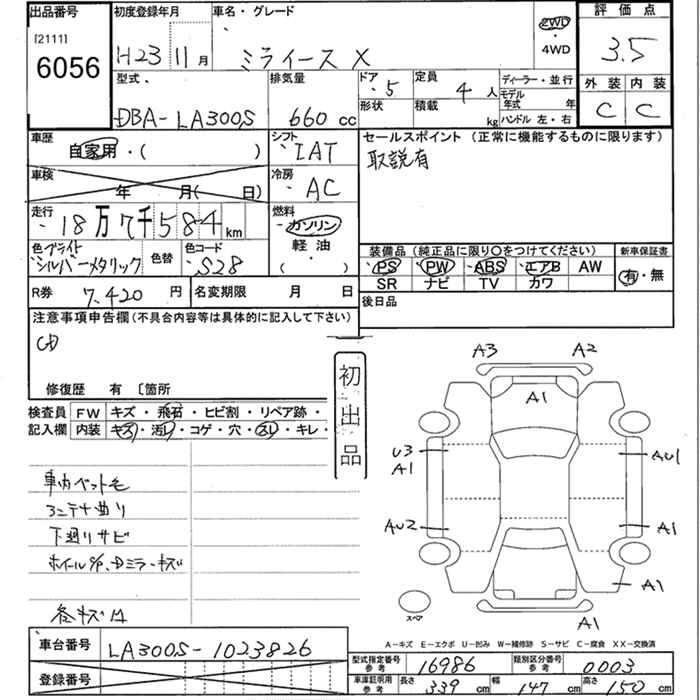 出品番号 初度登録年月 車名・グレード 2WD 評価点
[2111] H23 11月 ミライース X ・4WD 3.5
6056
型式 排気量 ドア 5 定員 4人 ディーラー・並行 外装 内装
DBA-LA300S 660cc 形状 積載 kg モデル年式 年 C C
ハンドル 左・右
車歴 自家用・( ) シフト IAT セールスポイント (正常に機能するものに限ります)
取説有
車検 年 月( 日) 冷房 AC
走行 18万7千584km 燃料 ガソリン 軽油 ・( )
色 シルバーメタリック 色替 色コード S28
装備品(純正品に限り○をつけてください) 新車保証書
PS PW ABS エアB AW 有・無
SR ナビ TV カワ
R券 7,420円 名変期限 月 日 後日品
注意事項申告欄(不具合内容等は具体的に記入して下さい)
CD
修復歴 有 [箇所
初出品
検査員 FW キズ・飛石・ヒビ割・リペア跡・
記入欄 内装 キズ・汚れ・コゲ・穴・スレ・キレ・
車内ペット毛
アンテナ曲り
下廻りサビ
ホイールc/p、Dミラーキズ
各キズ凹
A3 A2
A1
U3 AU1
A1
AU2 A1
A1
スペア A1
A-キズ E-エクボ U-凹み W-補修跡 S-サビ C-腐食 XX-交換済
車台番号 LA300S-1023826
登録番号
型式指定番号 参考 16986 類別区分番号 参考 0003
車庫証明用 参考 長さ 339cm 幅 147cm 高さ 150cm